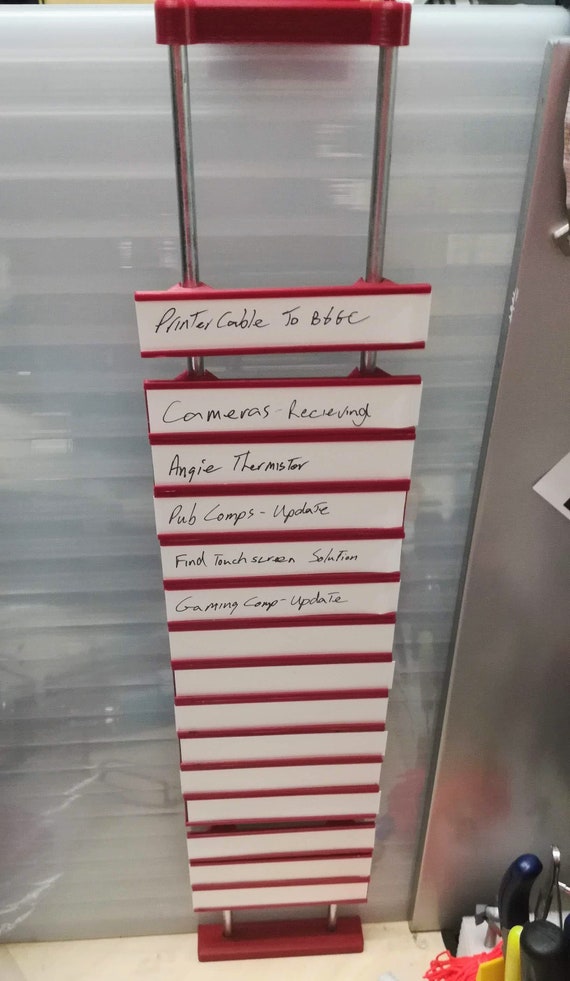 Printer Cable To BBGC
Cameras - Recieving
Angie Thermistor
Pub Comps - Update
Find Touchscreen Solution
Gaming Comp - Update